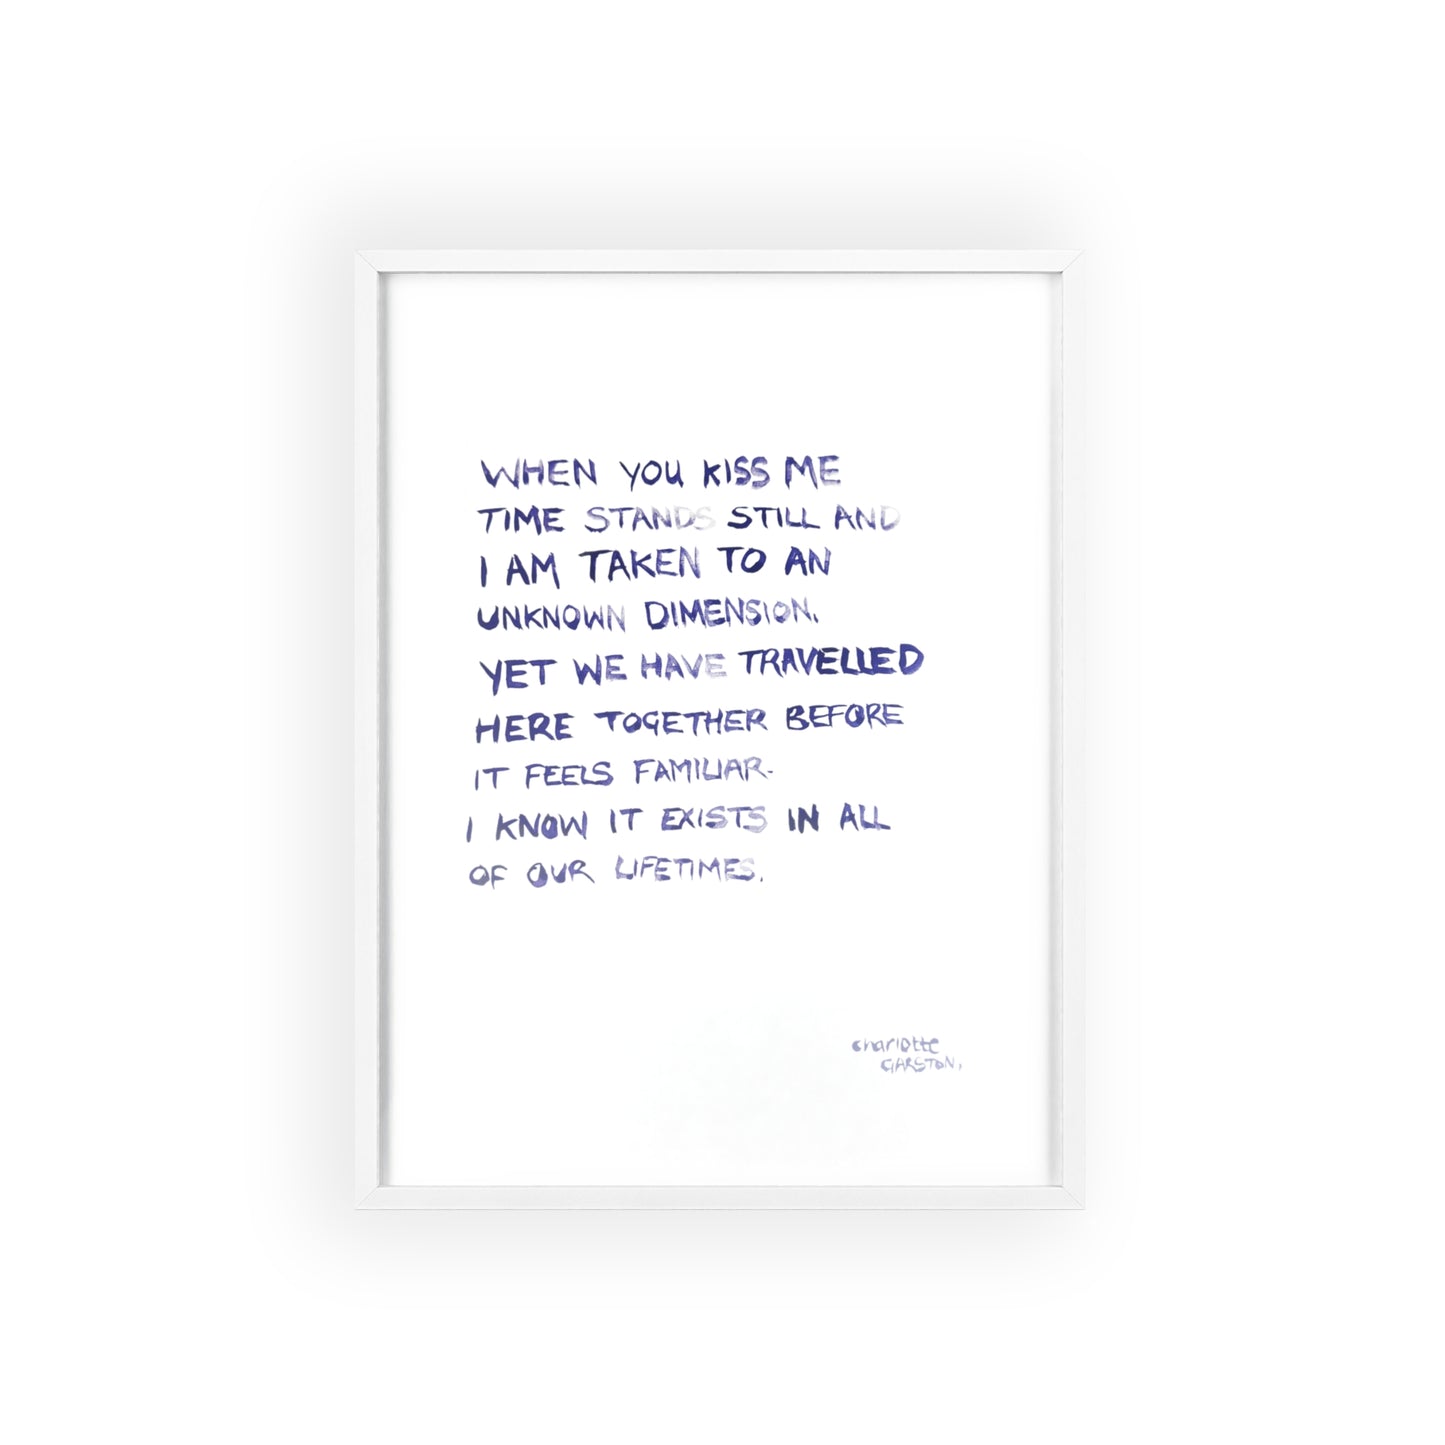 WHEN YOU KISS ME
TIME STANDS STILL AND
I AM TAKEN TO AN
UNKNOWN DIMENSION.
YET WE HAVE TRAVELLED
HERE TOGETHER BEFORE
IT FEELS FAMILIAR.
I KNOW IT EXISTS IN ALL
OF OUR LIFETIMES.
charlotte
GARSTON.